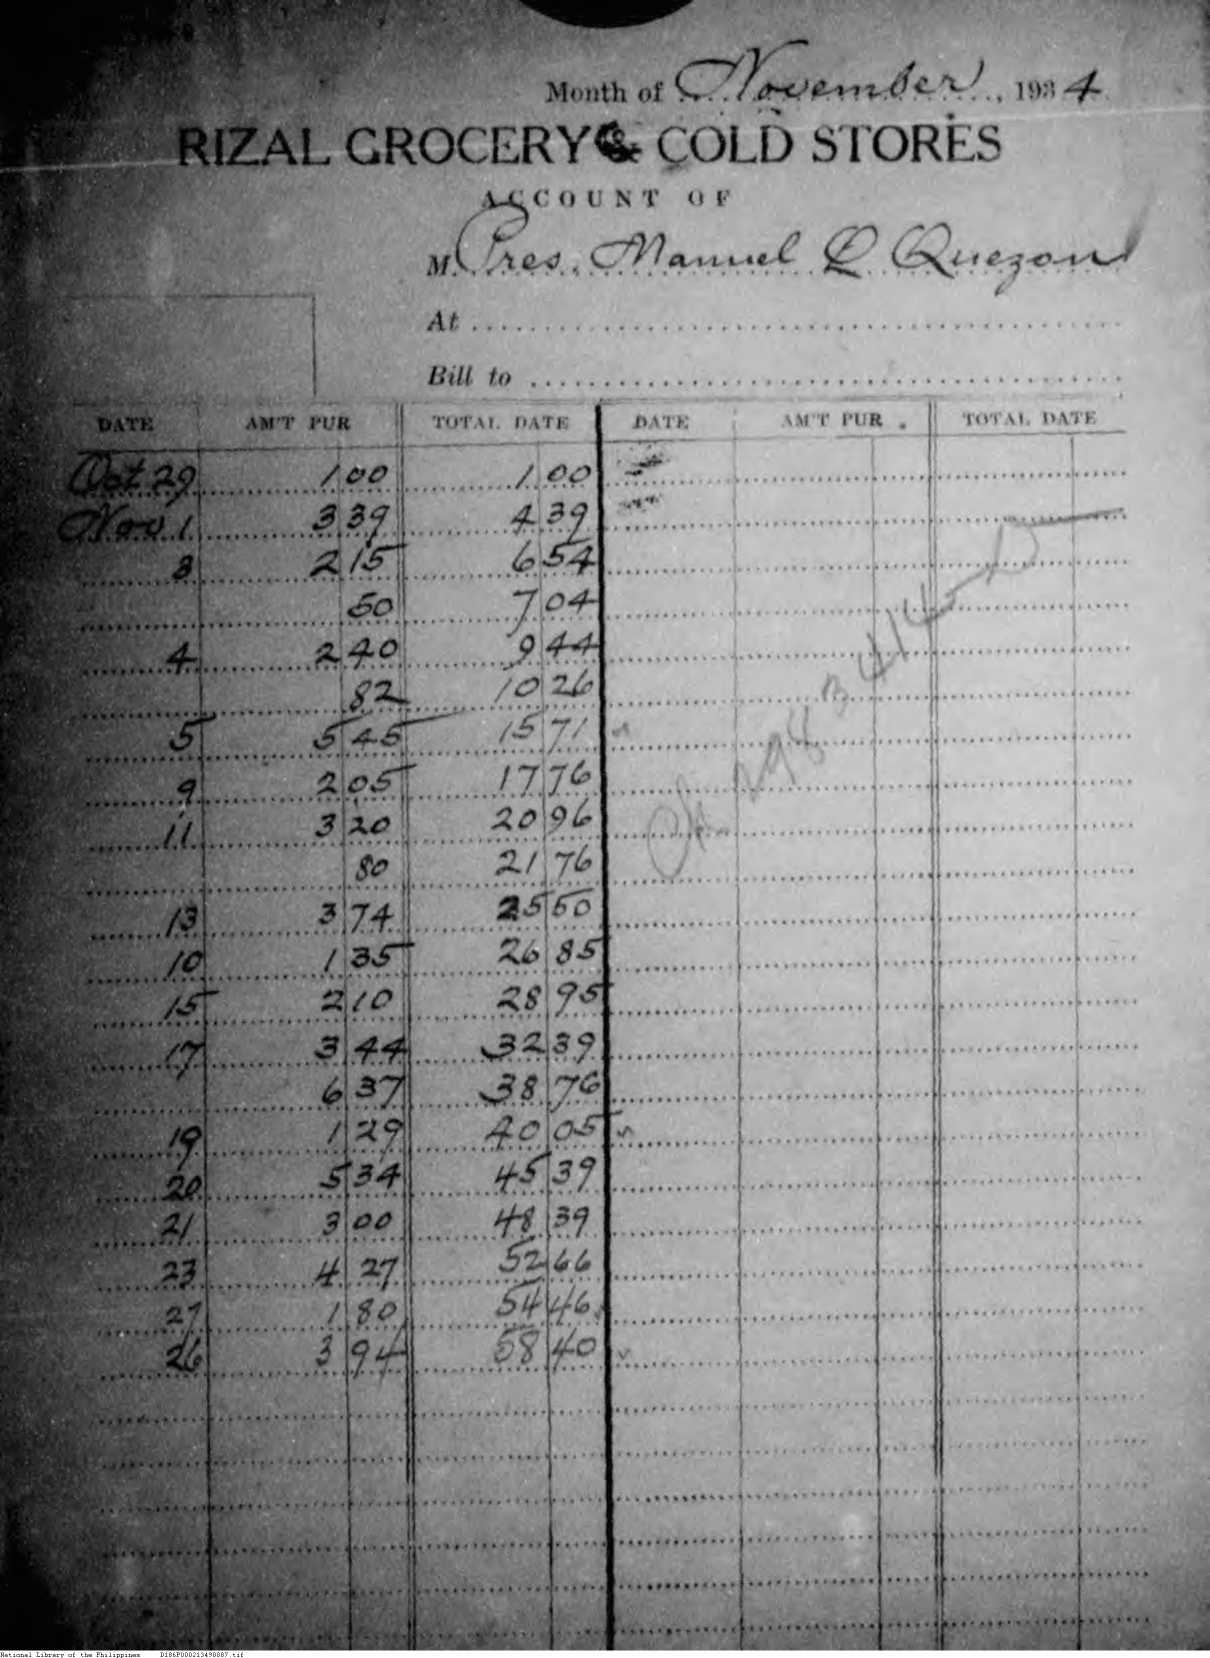 Month of November, 1934
RIZAL GROCERY & COLD STORES
ACCOUNT OF
M. Pres. Manuel L Quezon
At
Bill to
DATE AM'T PUR TOTAL DATE DATE AM'T PUR. TOTAL DATE
Oct 29 1 00 1 00
Nov. 1 3 39 4 39
3 2 15 6 54
50 7 04
4 2 40 9 44
82 10 26
5 5 45 15 71
9 2 05 17 76
11 3 20 20 96
80 21 76
13 3 74 25 50
10 1 35 26 85
15 2 10 28 95
17 3 44 32 39
6 37 38 76
19 1 29 40 05
20 5 34 45 39
21 3 00 48 39
23 4 27 52 66
27 1 80 54 46
26 3 94 58 40
National Library of the Philippines D186P000213490887.tif